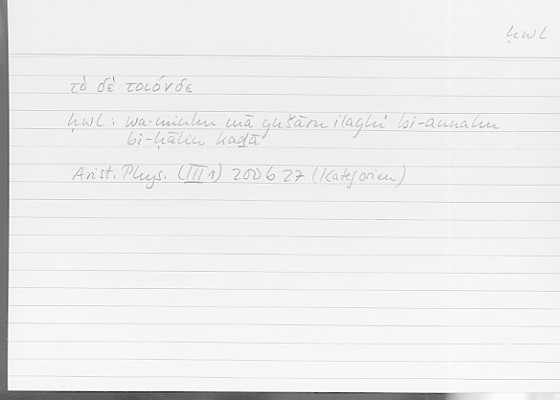 ḥwl
τὸ δὲ τοιόνδε
ḥwl : wa-minhu mā yušāru ilayhi bi-annahu
bi-ḥālin kaḏā
Arist. Phys. (III 1) 200 b 27 (Kategorien)